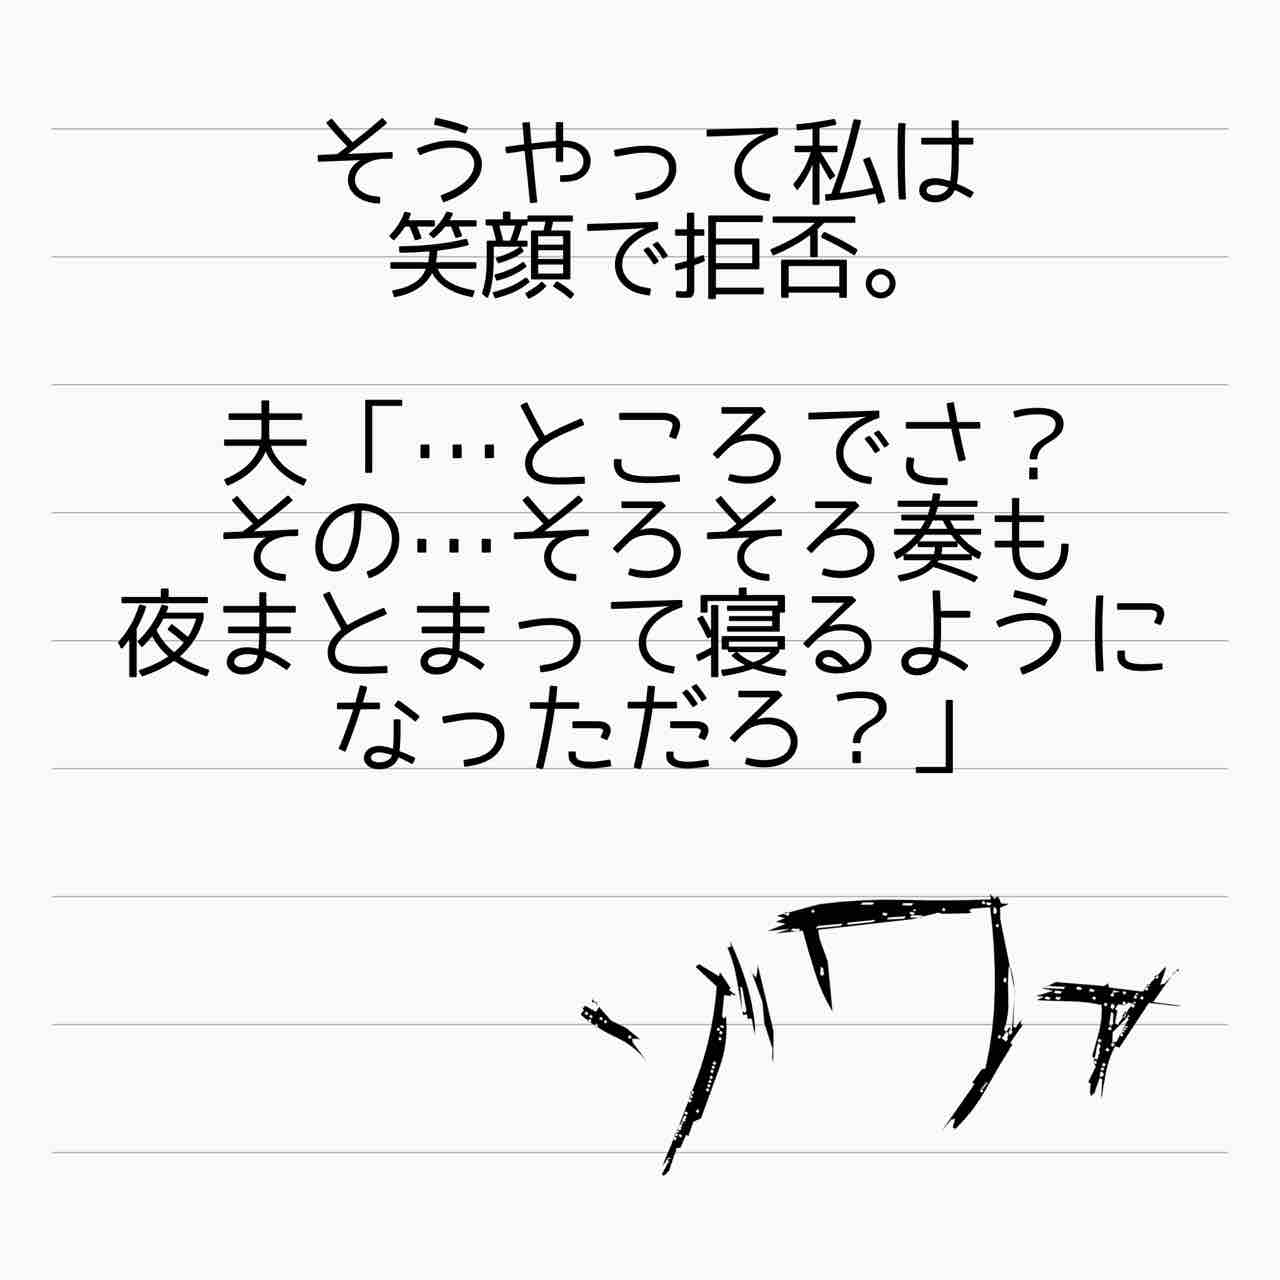 そうやって私は
笑顔で拒否。
夫「…ところでさ？
その…そろそろ奏も
夜まとまって寝るように
なっただろ？」
ゾワァ